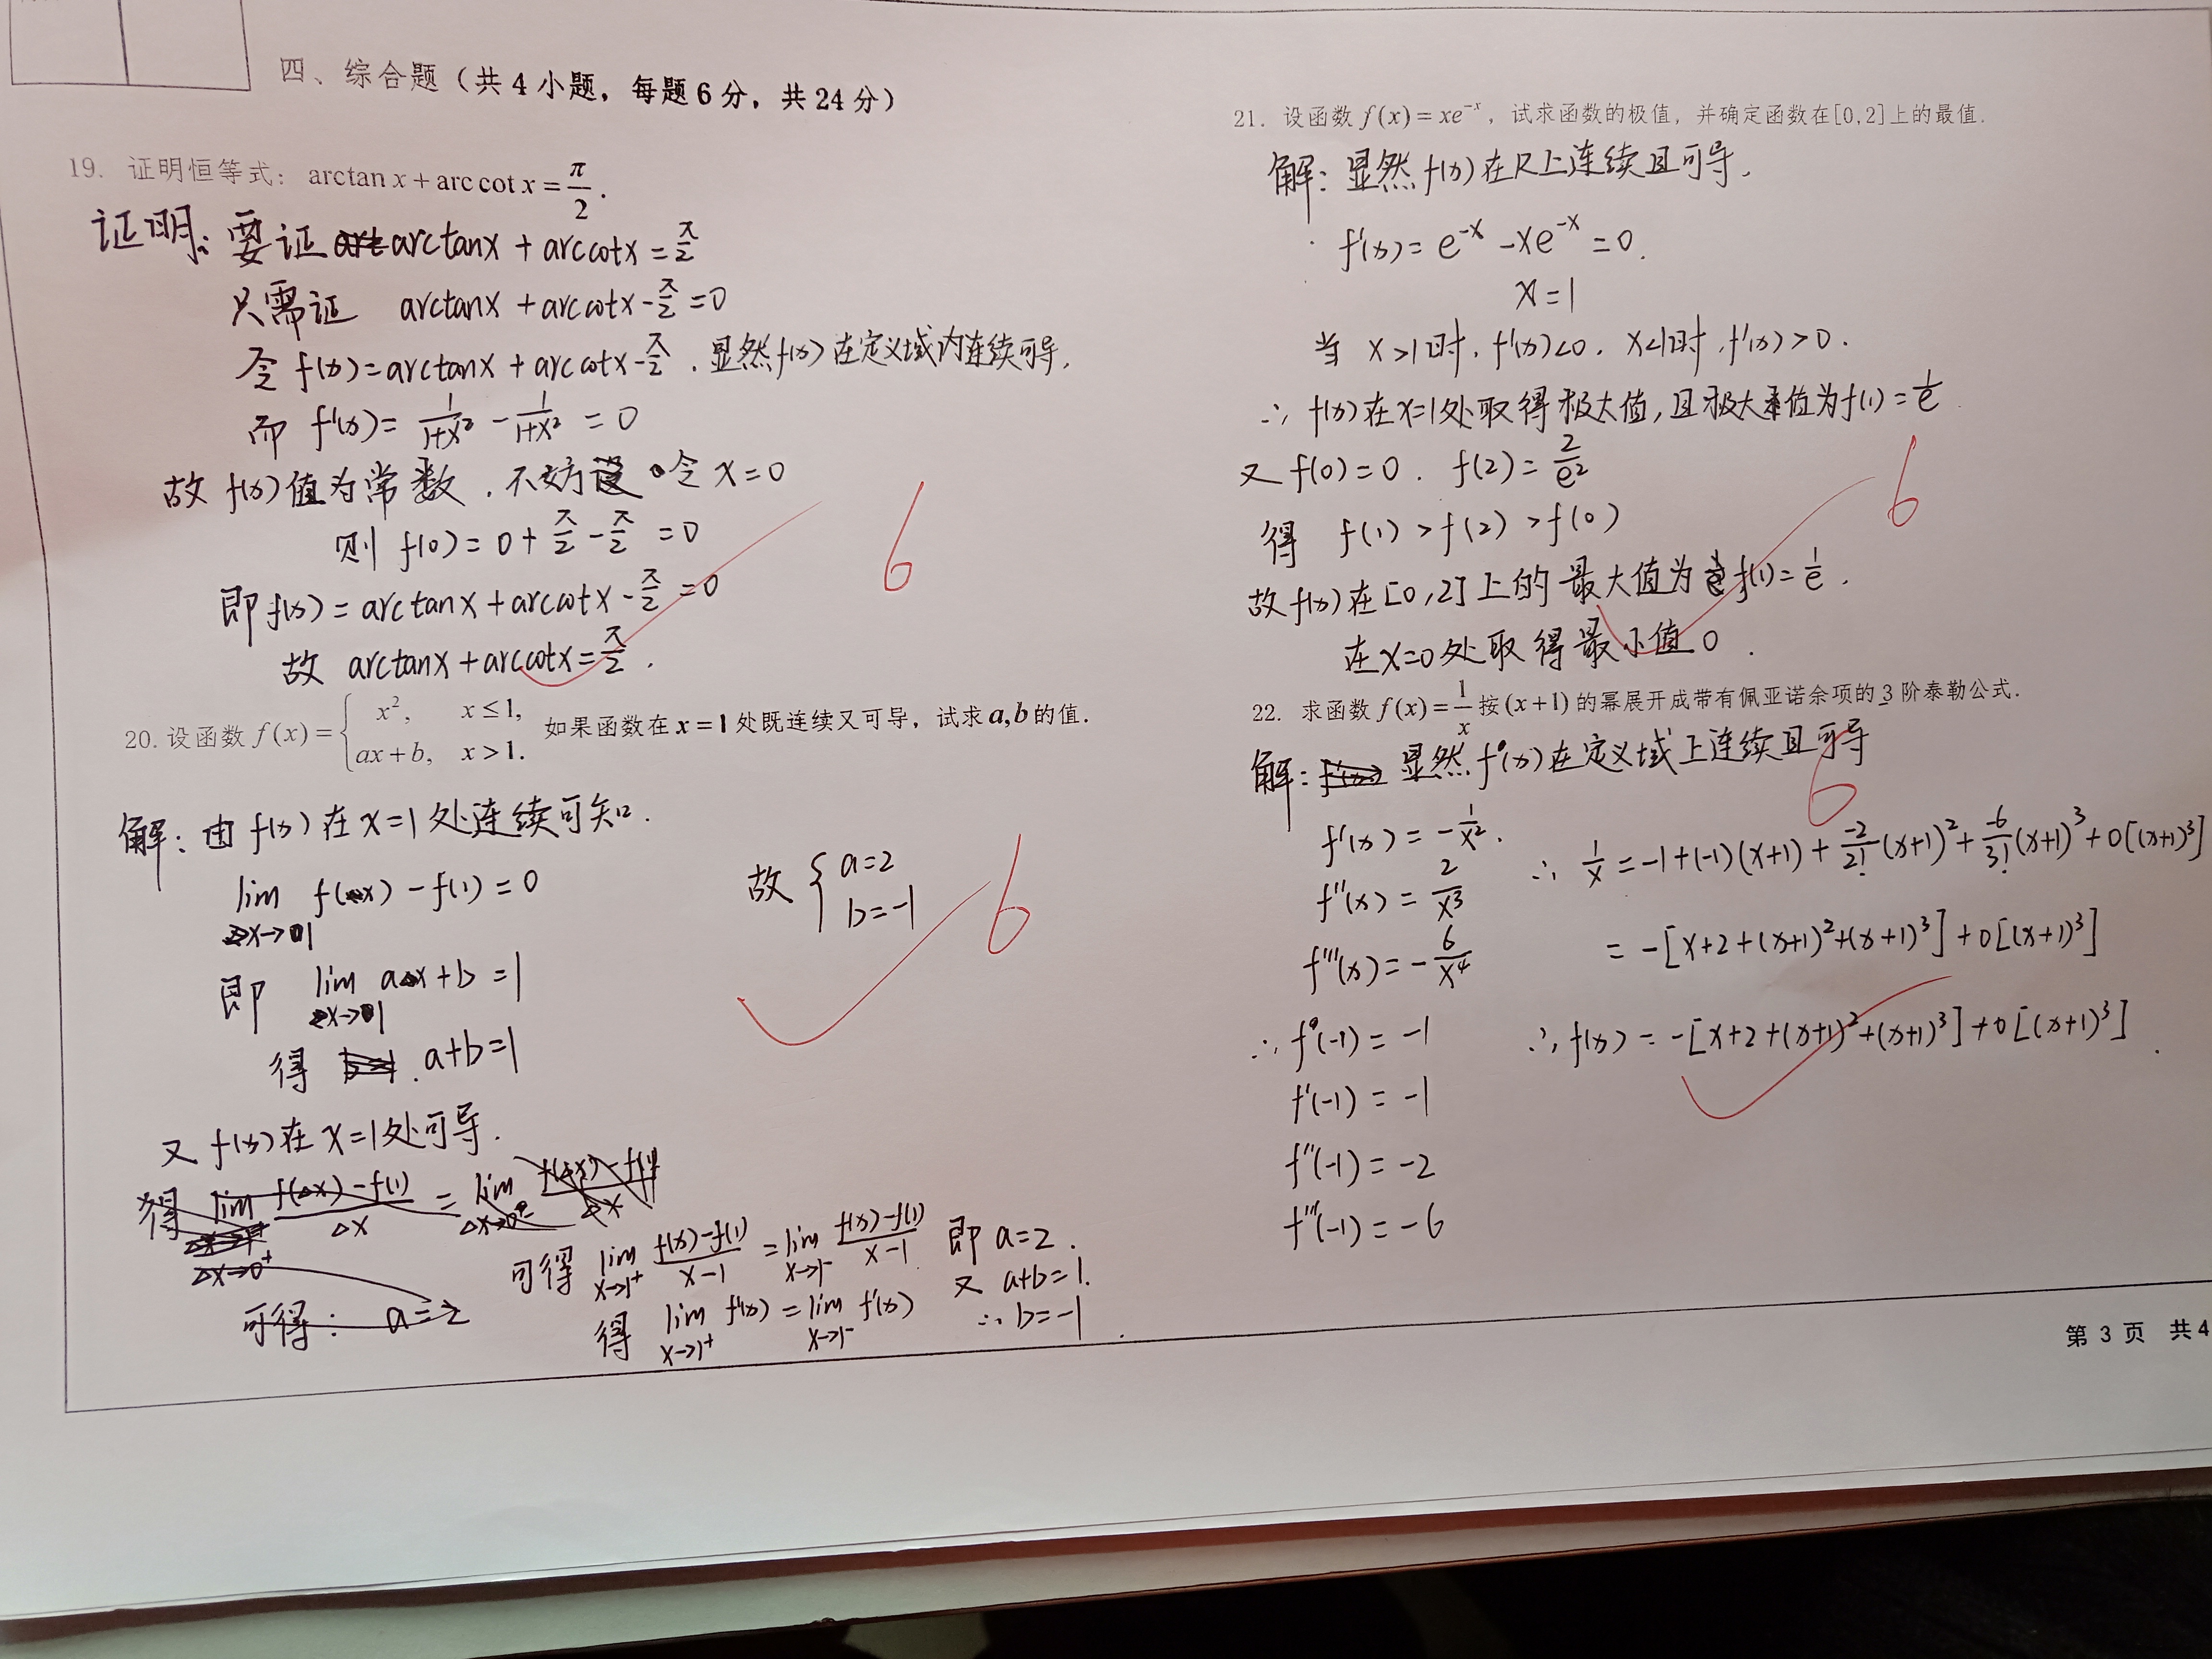 四、综合题（共 4 小题，每题 6 分，共 24 分）
19. 证明恒等式：arctan x + arc cot x = π/2.
证明：要证 arctanx + arccotx = π/2
只需证 arctanx + arccotx - π/2 = 0
令 f(x) = arctanx + arccotx - π/2 . 显然 f(x) 在定义域内连续可导,
而 f'(x) = 1/(1+x²) - 1/(1+x²) = 0
故 f(x) 值为常数 . 不妨设 令 x = 0
则 f(0) = 0 + π/2 - π/2 = 0
即 f(x) = arctanx + arccotx - π/2 = 0
故 arctanx + arccotx = π/2 .
6
20. 设函数 f(x) = { x², x ≤ 1, 如果函数在 x = 1 处既连续又可导，试求 a, b 的值.
ax + b, x > 1.
解：由 f(x) 在 x=1 处连续可知.
lim x→1 f(x) - f(1) = 0
即 lim x→1 ax + b = 1
得 . a+b=1
又 f(x) 在 x=1 处可导.
得 lim Δx→0⁺ (f(Δx) - f(1))/Δx = lim Δx→0⁻ (f(Δx) - f(1))/Δx
可得： a = 2
可得 lim x→1⁺ (f(x)-f(1))/(x-1) = lim x→1⁻ (f(x)-f(1))/(x-1) 即 a=2 .
又 a+b=1.
得 lim x→1⁺ f'(x) = lim x→1⁻ f'(x) ∴ b=-1 .
故 { a=2
b=-1
6
21. 设函数 f(x) = xe⁻ˣ，试求函数的极值，并确定函数在[0,2]上的最值.
解：显然 f(x) 在 R 上连续且可导.
f'(x) = e⁻ˣ - xe⁻ˣ = 0.
x = 1
当 x>1时, f'(x)<0. x<1时, f'(x)>0.
∴ f(x) 在 x=1处取得极大值, 且极大值为 f(1) = 1/e
又 f(0) = 0 . f(2) = 2/e²
得 f(1) > f(2) > f(0)
故 f(x) 在 [0,2] 上的最大值为 f(1) = 1/e .
在 x=0处取得最小值 0 .
6
22. 求函数 f(x) = 1/x 按 (x+1) 的幂展开成带有佩亚诺余项的 3 阶泰勒公式.
解： 显然 f(x) 在定义域上连续且可导
6
f'(x) = -1/x² .
f''(x) = 2/x³
f'''(x) = -6/x⁴
∴ f(-1) = -1
f'(-1) = -1
f''(-1) = -2
f'''(-1) = -6
∴ 1/x = -1+(-1)(x+1) + -2/2! (x+1)² + -6/3! (x+1)³ + o[(x+1)³]
= -[x+2+(x+1)²+(x+1)³] + o[(x+1)³]
∴ f(x) = -[x+2+(x+1)²+(x+1)³] + o[(x+1)³] .
第 3 页 共 4